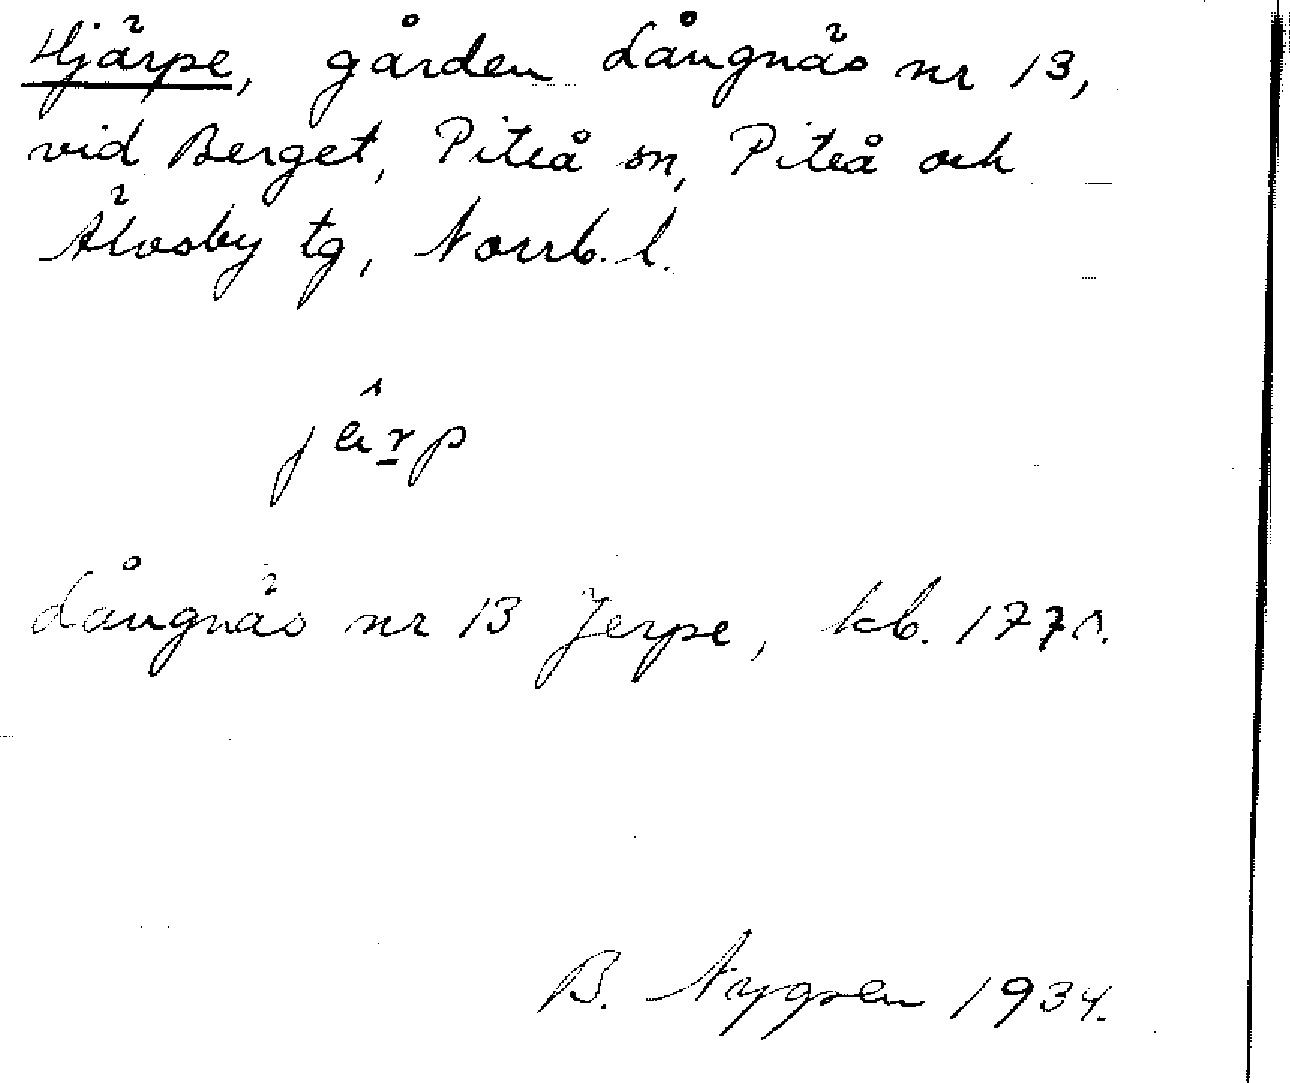 Hjärpe, gården Långnäs nr 13,
vid Berget, Piteå sn, Piteå och
Älvsby tg, Norrb. l.
Långnäs nr 13 Jerpe, kb.
B. Nygren 1934.